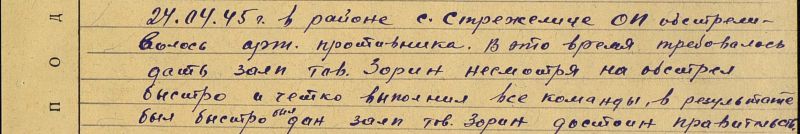 24.04.45 г. в районе с. Стрежелице ОП обстрели-
валось арт. противника. В это время требовалось
дать залп тов. Зорин несмотря на обстрел
быстро и четко выполнил все команды, в результате
был быстро был дан залп тов. Зорин достоин правительств
П О Д